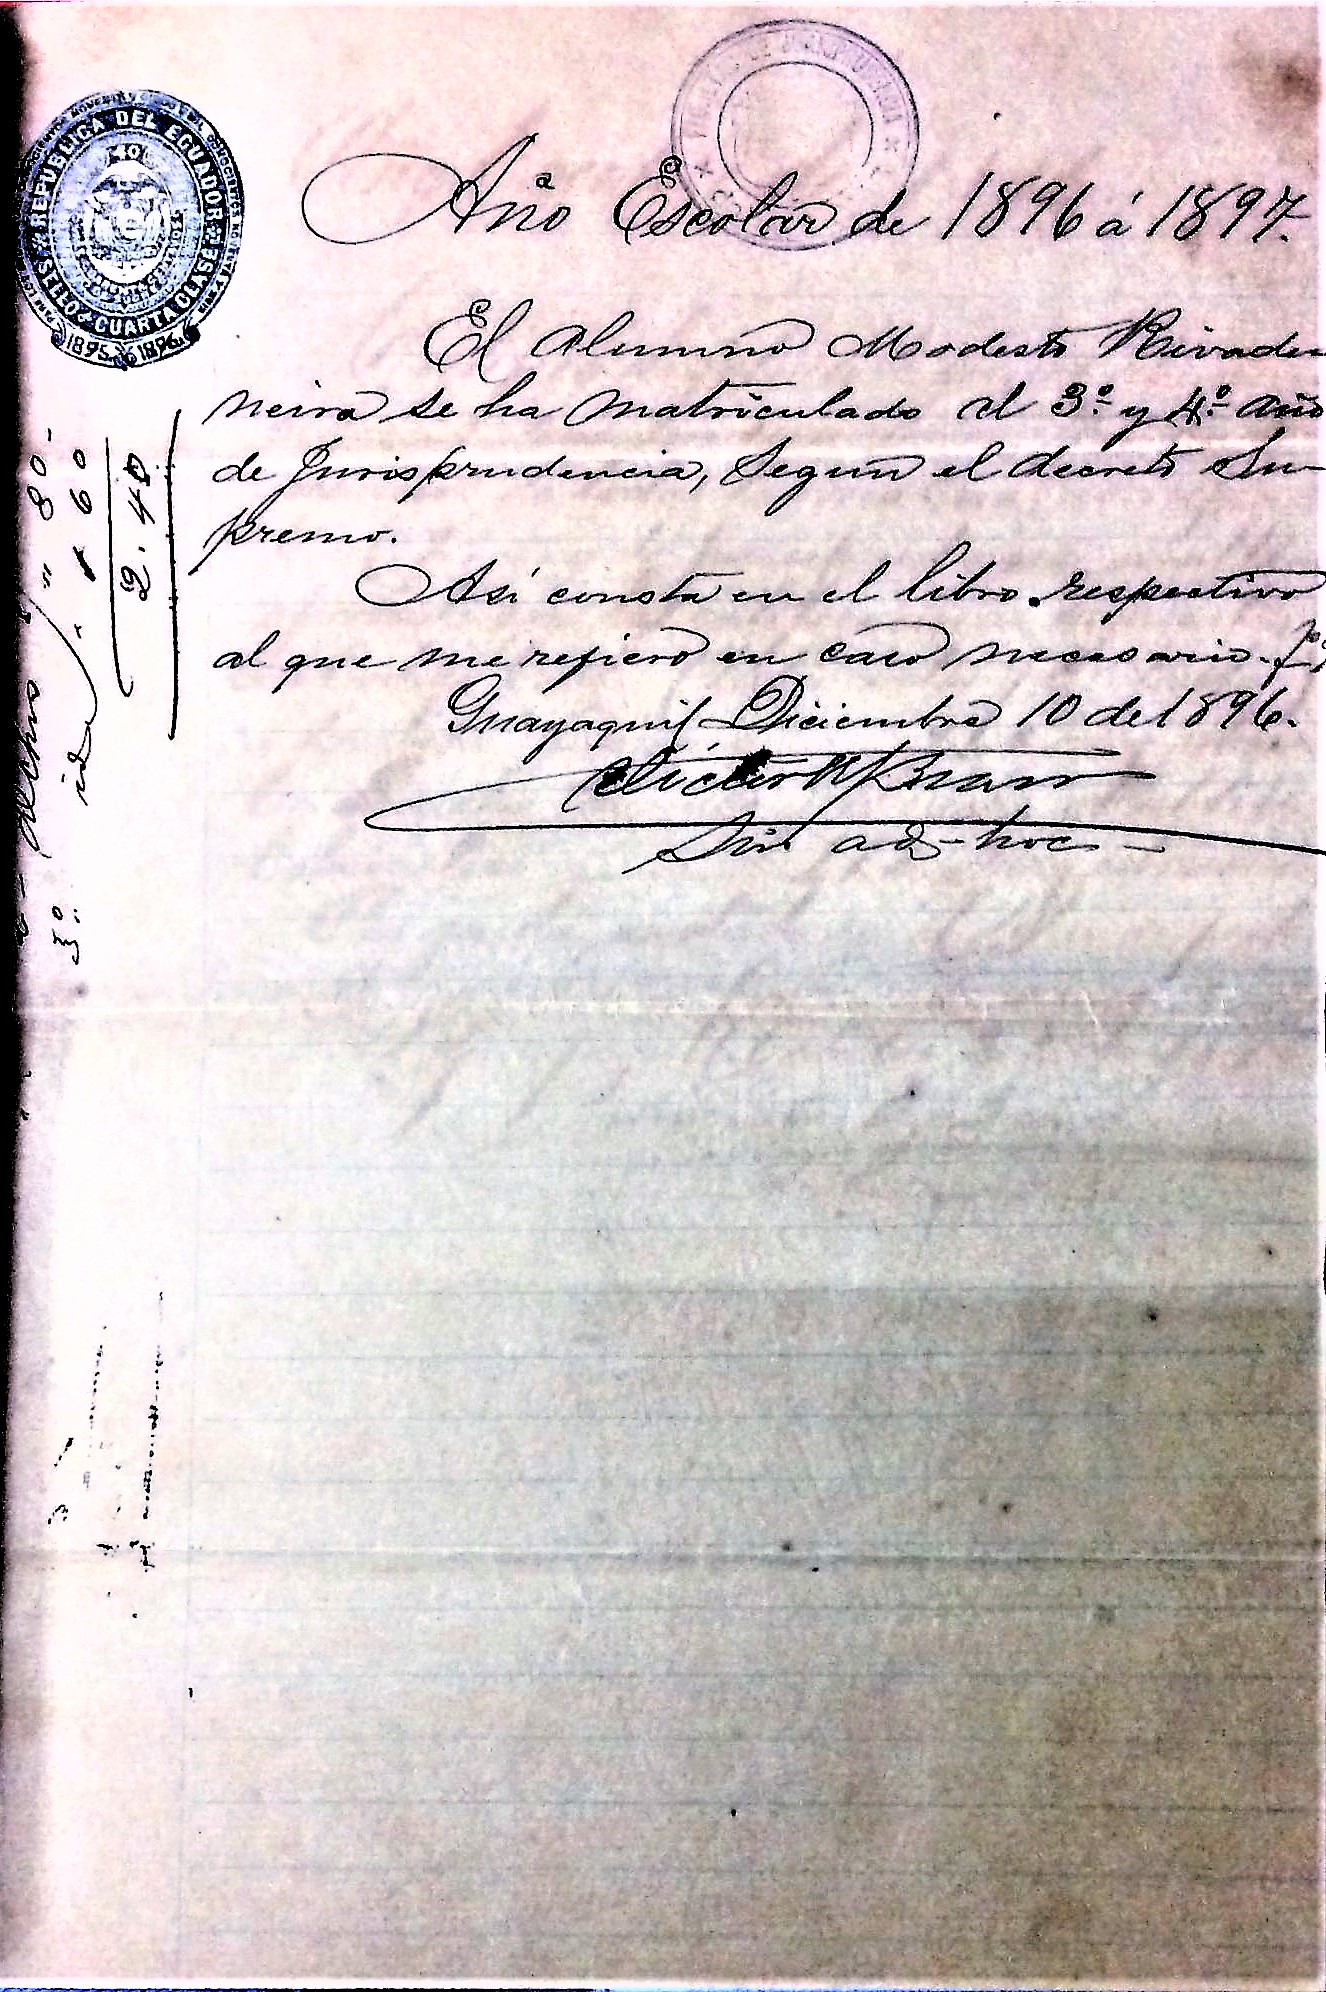 REPUBLICA DEL ECUADOR
40
SELLO CUARTA CLASE
1895 1896
Año Escolar de 1896 á 1897.
El alumno Modesto Rivade
neira se ha matriculado al 3º y 4º año
de Jurisprudencia, segun el decreto Su-
premo.
Así consta en el libro respectivo
al que me refiero en caso necesario.
Guayaquil Diciembre 10 de 1896.
ad-hoc
80
60
2.40
3º